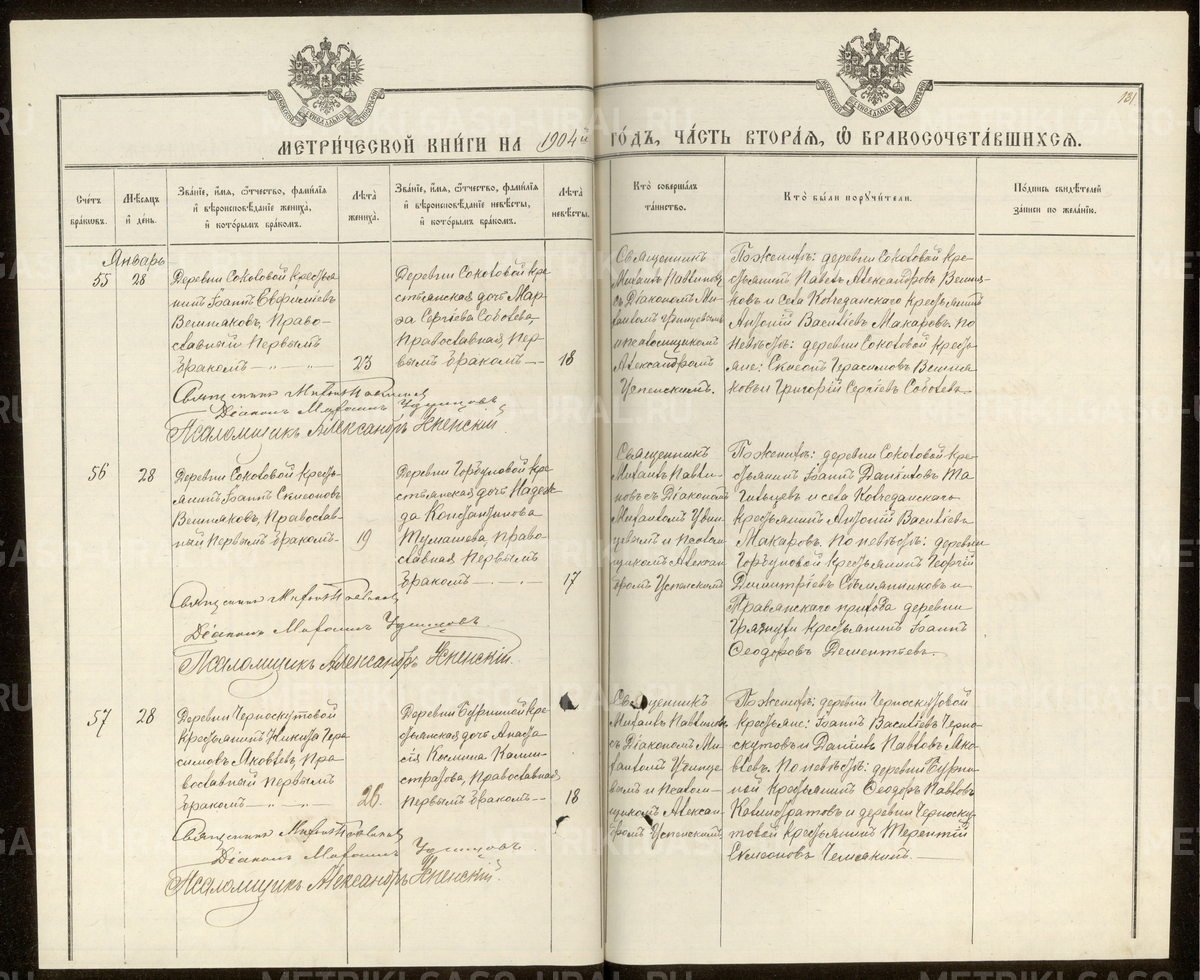 131
МЕТРИ́ЧЕСКОЙ КНИ́ГИ НА 1904й ГО́ДЪ, ЧА́СТЬ ВТОРА́Я, Ѡ БРАКОСОЧЕТА́ВШИХСЯ.
Сче́тъ бра́ковъ.
Мѣ́сяцъ и҆ де́нь.
Зва́нїе, и҆́мя, ѻ҆́тчество, фами́лїя и҆ вѣроисповѣ́данїе жениха̀, и҆ кото́рымъ бра́комъ.
Лѣ́та жениха̀.
Зва́нїе, и҆́мя, ѻ҆́тчество, фами́лїя и҆ вѣроисповѣ́данїе невѣ́сты, и҆ кото́рымъ бра́комъ.
Лѣ́та невѣ́сты.
Кто̀ соверша́лъ та́инство.
Кто̀ бы́ли поручи́тели.
По́дпись свидѣ́телей за́писи по жела́нїю.
Январь
55
28
Деревни Соколовой крестья
нинъ Іоаннъ Евфиміевъ
Вешняковъ, Право-
славный Первымъ
бракомъ — „ — „ —
23
Деревни Соколовой кре
стьянская дочь Мар-
ѳа Сергіева Соболева,
Православная, Пер-
вымъ бракомъ —
18
Священникъ
Михаилъ Павлиновъ
съ Діакономъ Ми-
хаиломъ Удинцевымъ
и псаломщикомъ
Александромъ
Успенскимъ.
По женихѣ: деревни Соколовой кре-
стьянинъ Павелъ Александровъ Вешня
ковъ и села Колчеданскаго крестьянинъ
Антоній Васильевъ Макаровъ. По
невѣстѣ: деревни Соколовой кресть-
яне: Симеонъ Герасимовъ Вешня
ковъ и Григорій Сергіевъ Соболевъ.
Священникъ Михаилъ Павлиновъ
Діаконъ Михаилъ Удинцовъ
Псаломщикъ Александръ Успенскій.
56
28
Деревни Соколовой кресть-
янинъ Іоаннъ Симеоновъ
Вешняковъ, Православ-
ный Первымъ бракомъ
19
Деревни Горбуновой кре
стьянская дочь Надеж
да Константинова
Тумашева, Право-
славная Первымъ
бракомъ — „ — „
17
Священникъ
Михаилъ Павли-
новъ съ Діакономъ
Михаиломъ Удин-
цевымъ и Псалом-
щикомъ Алексан
дромъ Успенскимъ
По женихѣ: деревни Соколовой кре-
стьянинъ Іоаннъ Даниловъ
и села Колчеданскаго
крестьянинъ Антоній Васильевъ
Макаровъ. По невѣстѣ: деревни
Горбуновой крестьянинъ Георгій
Димитріевъ Съмянниковъ и
Травянскаго прихода деревни
Грязнухи крестьянинъ Іоаннъ
Ѳеодоровъ Дементьевъ.
Священникъ Михаилъ Павлиновъ
Діаконъ Михаилъ Удинцовъ
Псаломщикъ Александръ Успенскій.
57
28
Деревни Черноскутовой
крестьянинъ Никита Гера
симовъ Яковлевъ, Пра
вославный первымъ
бракомъ — „ — „
26.
Деревни Бурниной кре
стьянская дочь Анаста
сія Космина Калли-
стратова, Православная
первымъ бракомъ —
18
Священникъ
Михаилъ Павлиновъ
съ Діакономъ Ми-
хаиломъ Удинце
вымъ и Псалом-
щикомъ Алексан
дромъ Успенскимъ
По женихѣ: деревни Черноскутовой
крестьяне: Іоаннъ Васильевъ Черно-
скутовъ и Даніилъ Павловъ Яко-
влевъ. По невѣстѣ: деревни Бурни-
ной крестьянинъ Ѳеодоръ Павловъ
Каллистратовъ и деревни Черноску-
товой крестьянинъ Терентій
Симеоновъ
Священникъ Михаилъ Павлиновъ
Діаконъ Михаилъ Удинцовъ
Псаломщикъ Александръ Успенскій.
METRIKI.GASO-URAL.RU